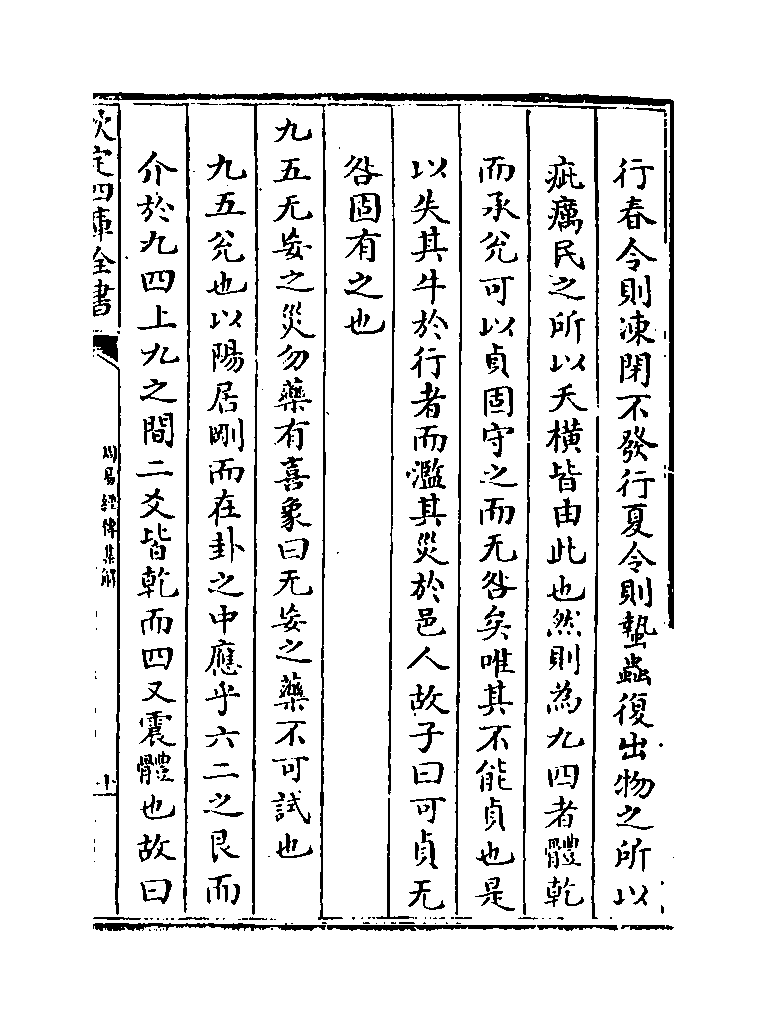 行春令則凍閉不發行夏令則蟄蟲復出物之所以
疵癘民之所以夭橫皆由此也然則為九四者體乾
而承兊可以貞固守之而无咎矣唯其不能貞也是
以失其牛於行者而濫其災於邑人故子曰可貞无
咎固有之也
九五无妄之災勿藥有喜象曰无妄之藥不可試也
九五兊也以陽居剛而在卦之中應乎六二之艮而
介於九四上九之間二爻皆乾而四又震體也故曰
欽定四庫全書
周易經傳集解